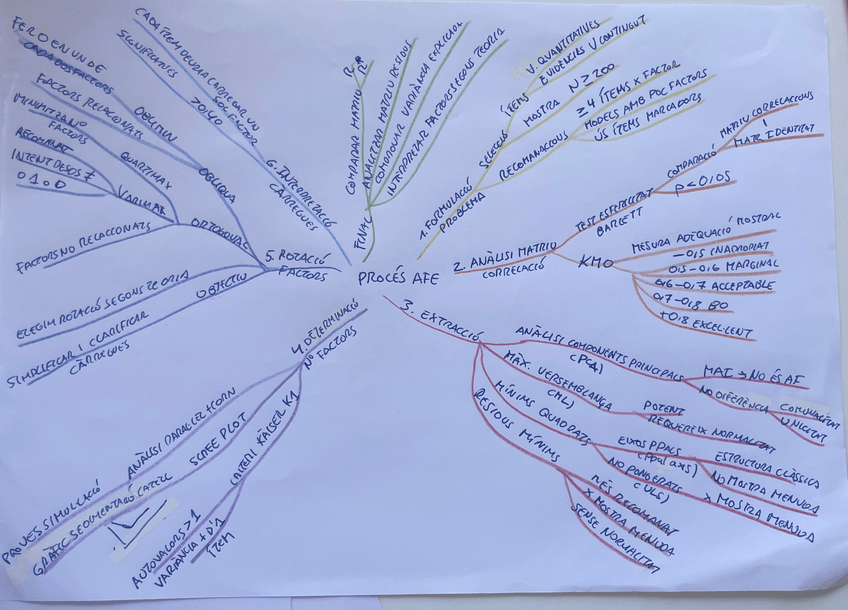 PROCÉS AFE
1. FORMULACIÓ
PROBLEMA
SELECCIÓ
ÍTEMS
V. QUANTITATIVES
EVIDENCIES V CONTINGUT
MOSTRA N≥200
RECOMANACIONS
≥4 ÍTEMS X FACTOR
MODELS AMB POC FACTORS
ÚS ÍTEMS MARCADORS
2. ANÀLISI MATRIU
CORRELACIÓ
TEST ESFERICITAT
BARLETT
COMPARACIÓ
MATRIU CORRELACIONS
I
MATR IDENTITAT
P<0'05
KMO
MESURA ADEQUACIÓ MOSTRAL
-0'5 INADEQUAT
0'5-0'6 MARGINAL
0'6-0'7 ACCEPTABLE
0'7-0'8 BO
+0'8 EXCEL·LENT
3. EXTRACCIÓ
ANÀLISI COMPONENTS PRINCIPALS
(PCA)
MAI → NO ÉS AF
NO DIFERÈNCIA
COMUNALITAT
UNICITAT
MÀX. VERSEMBLANÇA
(ML)
POTENT
REQUEREIX NORMALITAT
MÍNIMS QUADRATS
EIXOS PPALS
(Ppal axs)
ESTRUCTURA CLÀSSICA
NO MOSTRA MENUDA
NO PONDERATS
(ULS)
> MOSTRA MENUDA
RESIDUS MÍNIMS
MÉS RECOMANAT
X MOSTRA MENUDA
SENSE NORMALITAT
4. DETERMINACIÓ
Nº FACTORS
ANÀLISI PARAL·LEL HORN
PROVES SIMULACIÓ
SCREE PLOT
GRÀFIC SEDIMENTACIÓ CATELL
CRITERI KAISER K1
AUTOVALORS >1
VARIANCIA + D'1
ÍTEM
5. ROTACIÓ
FACTORS
OBJECTIU
SIMPLIFICAR I CLARIFICAR
CÀRREGUES
ELEGIM ROTACIÓ SEGONS TEORIA
ORTOGONAL
FACTORS NO RELACIONATS
VARIMAX
RECOMANAT
QUARTIMAX
MINIMITZA Nº
FACTORS
OBLIQUA
FACTORS RELACIONATS
OBLIMIN
6. INTERPRETACIÓ
CÀRREGUES
CADA ÍTEM DEURIA CARREGAR UN
SOL FACTOR
SIGNIFICATIVES
>0'40
FINAL
COMPARAR MATRIU
ANALITZAR MATRIU RESIDUS
COMPROVAR VARIÀNCIA EXPLICADA
INTERPRETAR FACTORS SEGONS TEORIA